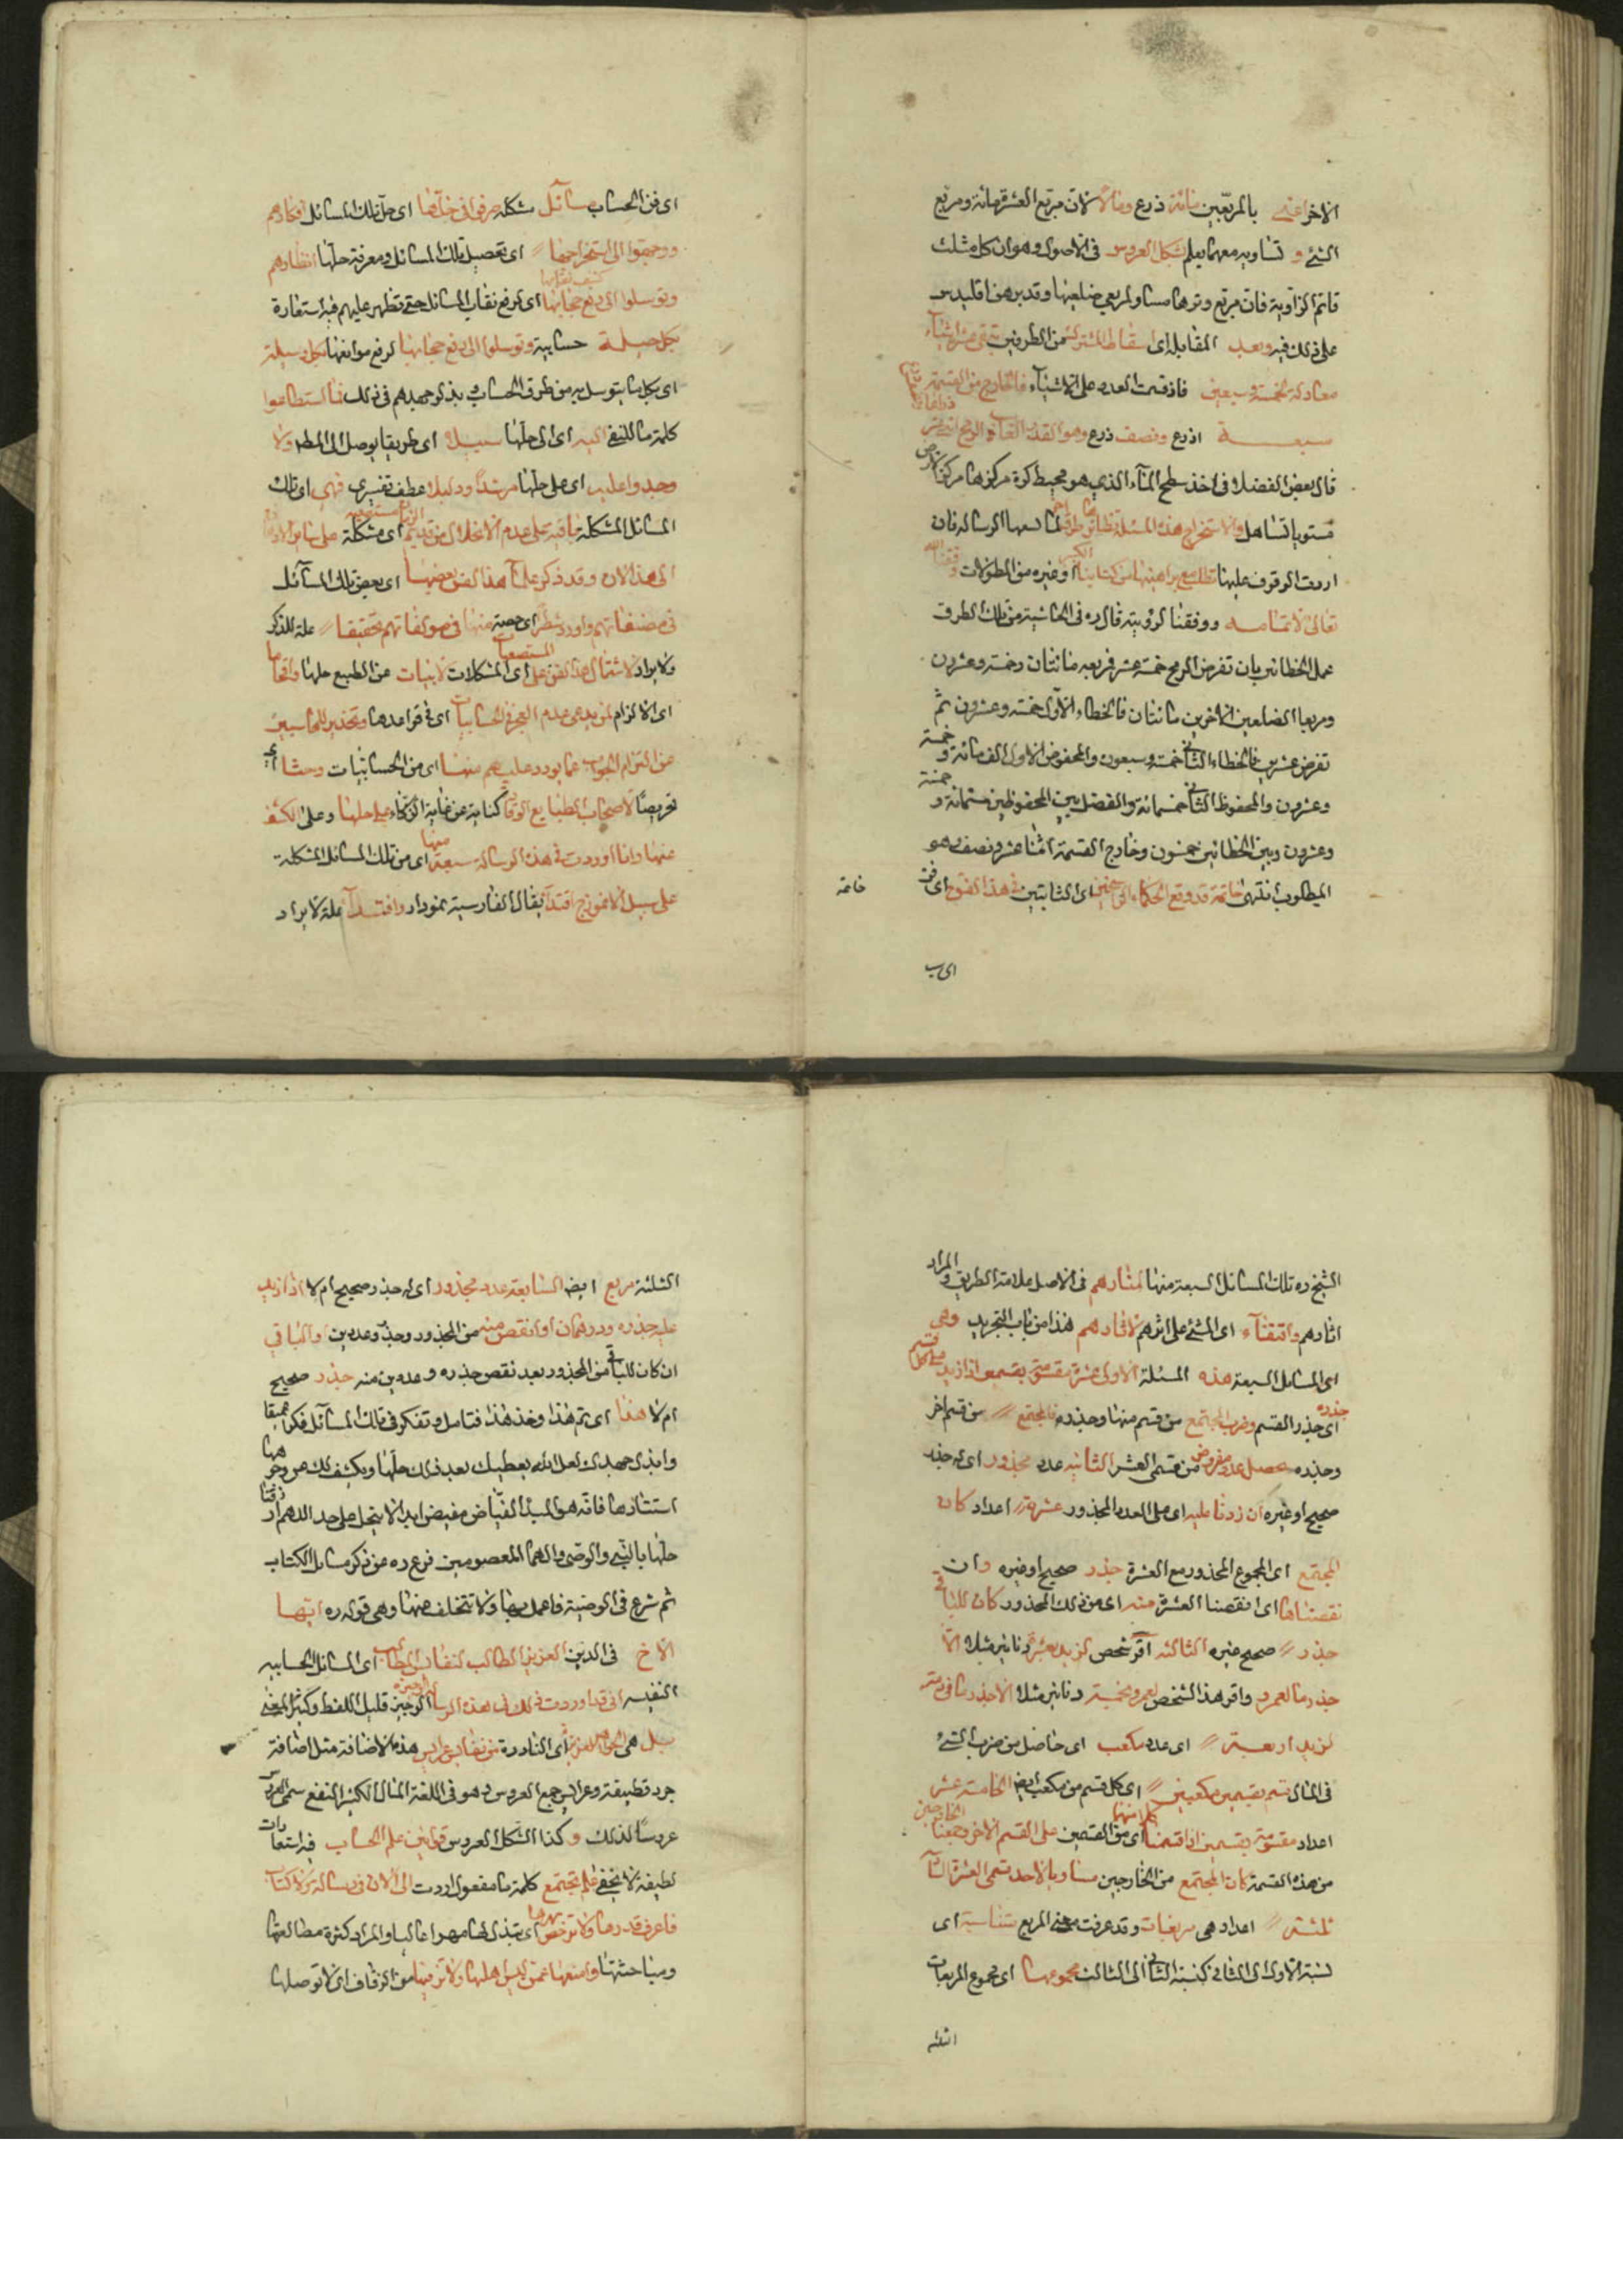 الاخر اعنى بالمربعين مائة ذرع ومالا لان مربع العشرة مائة ومربع
الشئ و تساويه معهما يعلم بشكل العروس فى الاصول وهو ان كل مثلث
قائم الزاوية فان مربع وترها مساو لمربعى ضلعيها وقد برهن اقليدس
على ذلك فيه وبعد المقابلة اى اسقاط المشترك من الطرفين يبقى عشرة اشياء
معادلة لخمسة وسبعين فاذ قسمت العدد على الاشياء فالخارج من القسمة
سبعة اذرع ونصف ذرع وهو القدر الغائب فالرمح
قال بعض الفضلاء فى اخذ سطح الماء الذى هو محيط كرة مركزها مركز الارض
مستويا تساهل ولاستخراج هذه المسئلة ونظائرها طرق اخر لما يسعها الرسالة فان
اردت الوقوف عليها تطلع مع براهينها من كتابنا الكبير او غيره من المطولات وفقنا الله
تعالى لاتمامه ووفقنا لرؤيته قال ره فى الحاشية من تلك الطرق
عمل الخطائين بان تفرض الرمح خمسة عشر فربعه مائتان وخمسة وعشرون
ومربعا الضلعين الاخرين مائتان فالخطاء الاول خمسة وعشرون ثم
تفرض عشرين فالخطاء الثانى خمسة وسبعون والمحفوظ الاول الف ومائة وخمسة
وعشرون والمحفوظ الثانى خمسمائة والفضل بين المحفوظين ستمائة وخمسة
وعشرون وبين الخطائين خمسون وخارج القسمة اثنا عشر ونصف وهو
المطلوب انتهى خاتمة قد وقع للحكماء الراسخين اى الثابتين فى هذا الفن اى فن
اى ب
خاتمة
اى فن الحساب مسائل مشكلة صرفوا فى حلها اى حل تلك المسائل افكارهم
ووجهوا الى استخراجها اى تحصيل تلك المسائل ومعرفة حلها انظارهم
وتوسلوا الى كشف نقابها اى لرفع نقاب المسائل حتى تظهر عليهم فيه استعارة
بكل حيلة حسابية وتوسلوا الى رفع حجابها لرفع موانعها بكل وسيلة
اى بكل ما يتوسل به من طرق الحساب وبذل جهدهم فى ذلك فما استطاعوا
كلمة ما للنفى اليه اى الى حلها سبيلا اى طريقا يوصل الى المط ولا
وجدوا عليه اى على حلها مرشدا ودليلا عطف تفسيرى فهى اى تلك
المسائل المشكلة باقية على عدم الانحلال من قديم الزمان مستصعبة اى مشكلة على سائر الاذهان
الى هذا الان وقد ذكر علماء هذا الفن بعضها اى بعض تلك المسائل
فى مصنفاتهم واوردوا شطرا اى حصة منها فى مولفاتهم تحقيقا علة للذكر
والايراد لاشتمال هذا الفن على المستصعبات اى المشكلات الابيات عن الطبيع حلها وافحاما
اى الالزام لمن يدعى عدم العجز فى الحسابيات اى فى قواعدها وتحذيرا للمحاسبين
عن التزام الجواب عما يورد عليهم منها اى من الحسابيات وحثا اى
تحريصا لاصحاب الطبايع الوقادة كناية عن غاية الذكاء على حلها وعلى الكشف
عنها وانا اوردت فى هذه الرسالة سبعة منها اى من تلك المسائل المشكلة
على سبيل الانموذج اقتداء يقال الفارسية نمودار واقتداء علة لايراد
الشيخ ره تلك المسائل السبعة منها لمنارهم فى الاصل علامة الطريق والمراد
اثارهم واقتفاء اى المشئ على اثرهم لاثارهم هذا من باب التجريد وهى
اى المسائل السبعة هذه المسئلة الاولى عشرة مقسومة بقسمين اذا زيد على كل قسم
جذره اى جذر القسم وضرب المجتمع من قسم منها وجذره فالمجتمع من قسم اخر
وجذره حصل عدد مفروض من قسمى العشر الثانية عدد مجذور اى له جذر
صحيح او غيره ان زدنا عليه اى على العدد المجذور عشرة اعداد كان
المجتمع اى المجموع المجذور مع العشرة جذر صحيح او غيره وان
نقصناها اى نقصنا العشرة منه اى من ذلك المجذور كان للباقى
جذر صحيح غيره الثالثة اقر شخص لزيد بعشرة دنانير مثلا الا
جذر ما لعمرو واقر هذا الشخص لعمرو بخمسة دنانير مثلا الا جذر ما فى ذمته
لزيد اربعة اى عدد مكعب اى حاصل من ضرب الشئ
فى المال قسم بقسمين مكعبين اى كل قسم من مكعب ايض الخامسة عشر
اعداد مقسومة بقسمين اذا قسمنا كلا منهما اى من القسمين على القسم الاخر وجمعنا الخارجين
من هذه القسمة كان المجتمع من الخارجين مساويا لاحد قسمى العشرة السادسة
ثلثة اعداد هى مربعات وقد عرفت معنى المربع متناسبة اى
نسبة الاول الى الثانى كنسبة الثانى الى الثالث مجموعها اى مجموع المربعات
الثلثة
الثلثة مربع ايض السابعة عدد مجذور اى له جذر صحيح ام لا اذا زيد
عليه جذره ودرهمان او انقص منه من المجذور وجذره وعددين او الباقى
ان كان للباقى من المجذور بعد نقص جذره وعددين منه جذر صحيح
ام لا هذا اى تم هذا وخذ هذا فتامل وتفكر فى تلك المسائل فكرا عميقا
وابذل جهدك لعل الله يعطيك بعد ذلك حلها ويكشف لك عن وجوهها
استتارها فانه هو المبدأ الفياض مفيض ابدا لا يبخل على احد اللهم ارزقنا
حلها بالنبى والوصى والهما المعصومين فرغ ره من ذكر مسائل الكتاب
ثم شرع فى الوصية فاعمل بها ولا تتخلف عنها وهى قوله ره ايها
الاخ فى الدين العزيز الطالب لنفائس المطالب اى المسائل الحسابيه
النفيسه انى قد اوردت لك فى هذه الرسالة الوجيزة الوجيز قليل اللفظ وكثير المعنى
بل هى الجوهر العزيزة اى النادرة من نفايس عرايس هذه الاضافة مثل اضافة
جرد قطيفة وعرايس جمع العروس وهو فى اللغة المال الكثير النفع سمى العروس
عروسا لذلك وكذا الشكل العروس قوانين علم الحساب فيه استعارات
لطيفة لا يخفى على ما تجتمع كلمة ما مفعول اوردت الى الان فى رسالة ولا كتاب
فاعرف قدرها ولا ترخص مهرها اى بتبذل لها مهرا غاليا والمراد كثرة مطالعتها
ومباحثتها وامنعها عمن ليس اهلها ولا تزفها من الزفاف اى لا توصلها